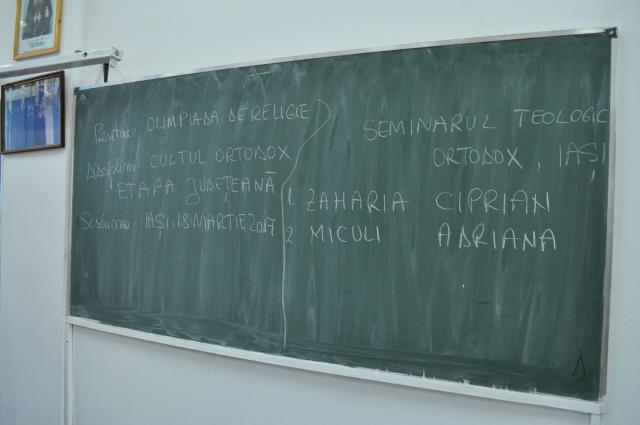 Pentru OLIMPIADA DE RELIGIE
Disciplina: CULTUL ORTODOX
ETAPA JUDEȚEANĂ
Sesiunea IAȘI, 18 MARTIE 2017
SEMINARUL TEOLOGIC
ORTODOX, IAȘI
1. ZAHARIA CIPRIAN
2. MICULI ADRIANA